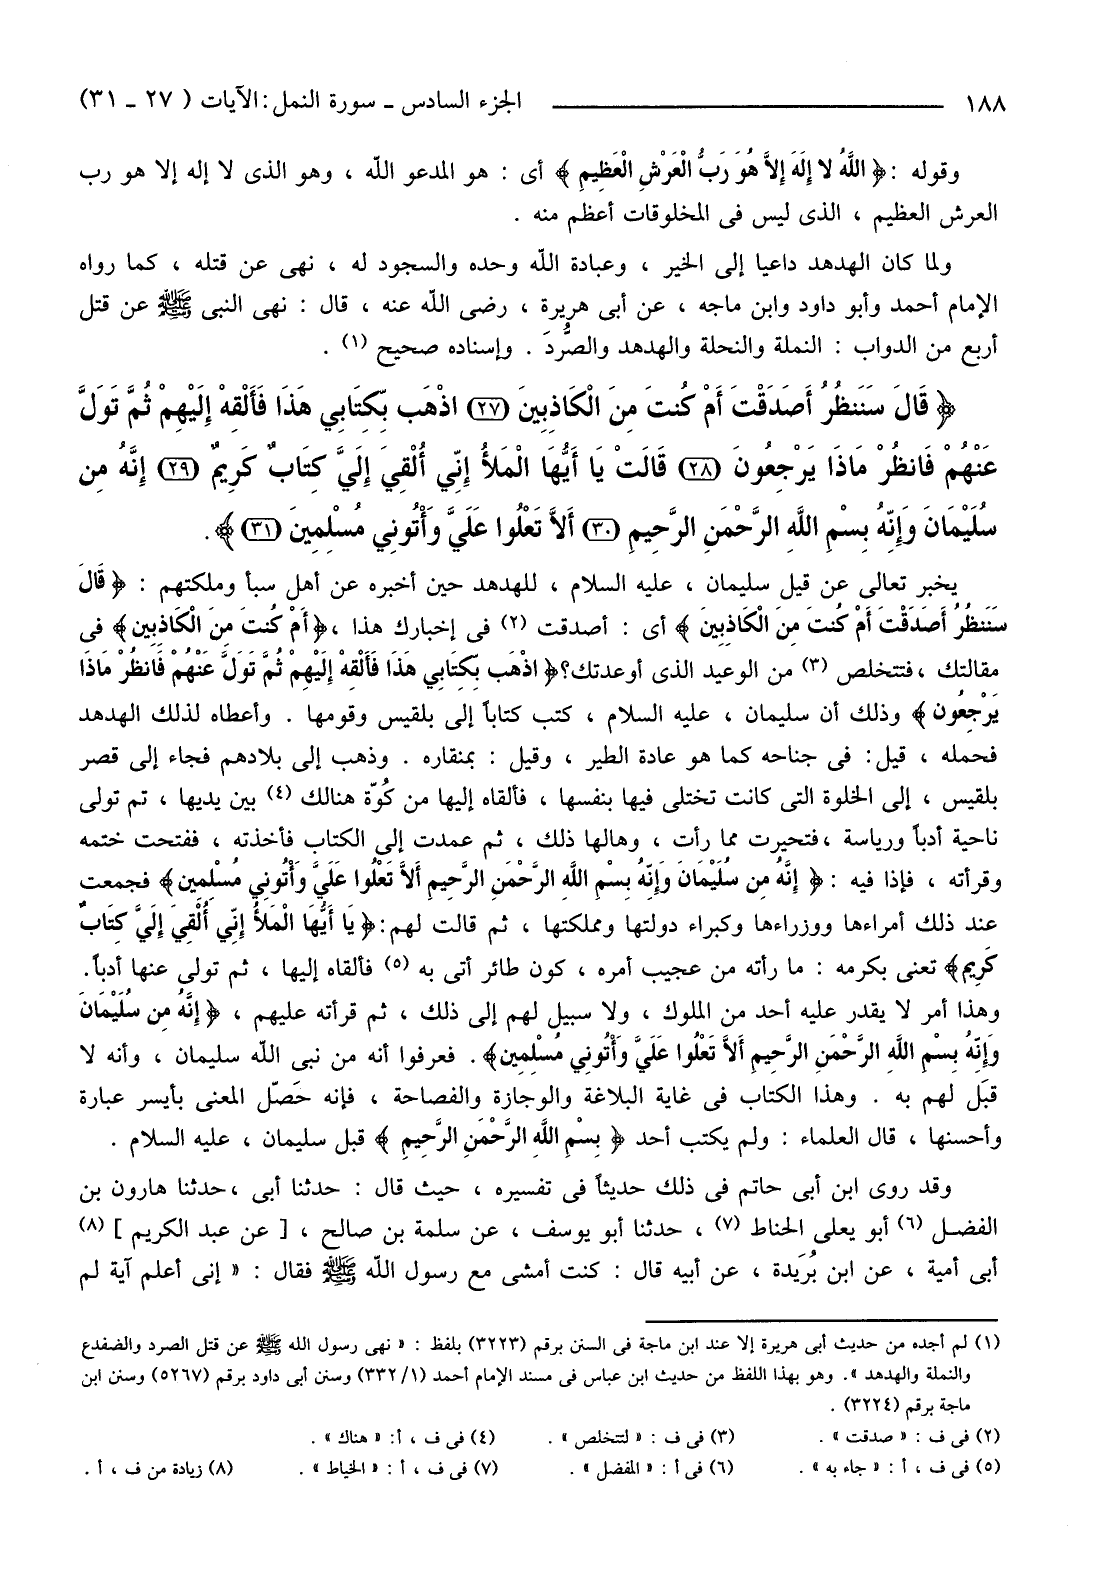 ١٨٨ ــــــــــــ الجزء السادس - سورة النمل : الآيات ( ٢٧ - ٣١)
وقوله : ﴿ اللَّهُ لا إِلَهَ إِلاَّ هُوَ رَبُّ الْعَرْشِ الْعَظِيمِ ﴾ أى : هو المدعو اللّه ، وهو الذى لا إله إلا هو رب
العرش العظيم ، الذى ليس فى المخلوقات أعظم منه .
ولما كان الهدهد داعيا إلى الخير ، وعبادة اللّه وحده والسجود له ، نهى عن قتله ، كما رواه
الإمام أحمد وأبو داود وابن ماجه ، عن أبى هريرة ، رضى اللّه عنه ، قال : نهى النبى ﷺ عن قتل
أربع من الدواب : النملة والنحلة والهدهد والصُّردَ . وإسناده صحيح (١) .
﴿ قَالَ سَنَنظُرُ أَصَدَقْتَ أَمْ كُنتَ مِنَ الْكَاذِبِينَ (٢٧) اذْهَب بِّكِتَابِي هَذَا فَأَلْقِهْ إِلَيْهِمْ ثُمَّ تَوَلَّ
عَنْهُمْ فَانظُرْ مَاذَا يَرْجِعُونَ (٢٨) قَالَتْ يَا أَيُّهَا الْمَلأُ إِنِّي أُلْقِيَ إِلَيَّ كِتَابٌ كَرِيمٌ (٢٩) إِنَّهُ مِن
سُلَيْمَانَ وَإِنَّهُ بِسْمِ اللَّهِ الرَّحْمَنِ الرَّحِيمِ (٣٠) أَلاَّ تَعْلُوا عَلَيَّ وَأْتُونِي مُسْلِمِينَ (٣١) ﴾ .
يخبر تعالى عن قيل سليمان ، عليه السلام ، للهدهد حين أخبره عن أهل سبأ وملكتهم : ﴿ قَالَ
سَنَنظُرُ أَصَدَقْتَ أَمْ كُنتَ مِنَ الْكَاذِبِينَ ﴾ أى : أصدقت (٢) فى إخبارك هذا ، ﴿ أَمْ كُنتَ مِنَ الْكَاذِبِين﴾ فى
مقالتك ، فتتخلص (٣) من الوعيد الذى أوعدتك؟ ﴿ اذْهَب بِّكِتَابِي هَذَا فَأَلْقِهْ إِلَيْهِمْ ثُمَّ تَوَلَّ عَنْهُمْ فَانظُرْ مَاذَا
يَرْجِعُون ﴾ وذلك أن سليمان ، عليه السلام ، كتب كتاباً إلى بلقيس وقومها . وأعطاه لذلك الهدهد
فحمله ، قيل: فى جناحه كما هو عادة الطير ، وقيل : بمنقاره . وذهب إلى بلادهم فجاء إلى قصر
بلقيس ، إلى الخلوة التى كانت تختلى فيها بنفسها ، فألقاه إليها من كُوّة هنالك (٤) بين يديها ، تم تولى
ناحية أدباً ورياسة ، فتحيرت مما رأت ، وهالها ذلك ، ثم عمدت إلى الكتاب فأخذته ، ففتحت ختمه
وقرأته ، فإذا فيه : ﴿ إِنَّهُ مِن سُلَيْمَانَ وَإِنَّهُ بِسْمِ اللَّهِ الرَّحْمَنِ الرَّحِيمِ أَلاَّ تَعْلُوا عَلَيَّ وَأْتُونِي مُسْلِمِين﴾ فجمعت
عند ذلك أمراءها ووزراءها وكبراء دولتها ومملكتها ، ثم قالت لهم: ﴿ يَا أَيُّهَا الْمَلأُ إِنِّي أُلْقِيَ إِلَيَّ كِتَابٌ
كَرِيم﴾ تعنى بكرمه : ما رأته من عجيب أمره ، كون طائر أتى به (٥) فألقاه إليها ، ثم تولى عنها أدباً.
وهذا أمر لا يقدر عليه أحد من الملوك ، ولا سبيل لهم إلى ذلك ، ثم قرأته عليهم ، ﴿ إِنَّهُ مِن سُلَيْمَانَ
وَإِنَّهُ بِسْمِ اللَّهِ الرَّحْمَنِ الرَّحِيمِ أَلاَّ تَعْلُوا عَلَيَّ وَأْتُونِي مُسْلِمِين﴾ . فعرفوا أنه من نبى اللّه سليمان ، وأنه لا
قبَل لهم به . وهذا الكتاب فى غاية البلاغة والوجازة والفصاحة ، فإنه حَصّل المعنى بأيسر عبارة
وأحسنها ، قال العلماء : ولم يكتب أحد ﴿ بِسْمِ اللَّهِ الرَّحْمَنِ الرَّحِيمِ ﴾ قبل سليمان ، عليه السلام .
وقد روى ابن أبى حاتم فى ذلك حديثاً فى تفسيره ، حيث قال : حدثنا أبى ، حدثنا هارون بن
الفضل (٦) أبو يعلى الحناط (٧) ، حدثنا أبو يوسف ، عن سلمة بن صالح ، [ عن عبد الكريم ] (٨)
أبى أمية ، عن ابن بُرَيدة ، عن أبيه قال : كنت أمشى مع رسول اللّه ﷺ فقال : « إنى أعلم آية لم
(١) لم أجده من حديث أبى هريرة إلا عند ابن ماجة فى السنن برقم (٣٢٢٣) بلفظ : « نهى رسول الله ﷺ عن قتل الصرد والضفدع
والنملة والهدهد ». وهو بهذا اللفظ من حديث ابن عباس فى مسند الإمام أحمد (١/ ٣٣٢) وسنن أبى داود برقم (٥٢٦٧) وسنن ابن
ماجة برقم (٣٢٢٤) .
(٢) فى ف : « صدقت » . (٣) فى ف : « لتتخلص » . (٤) فى ف ، أ: « هناك » .
(٥) فى ف ، أ : « جاء به » . (٦) فى أ : « المفضل » . (٧) فى ف ، أ : « الخياط » . (٨) زيادة من ف ، أ .